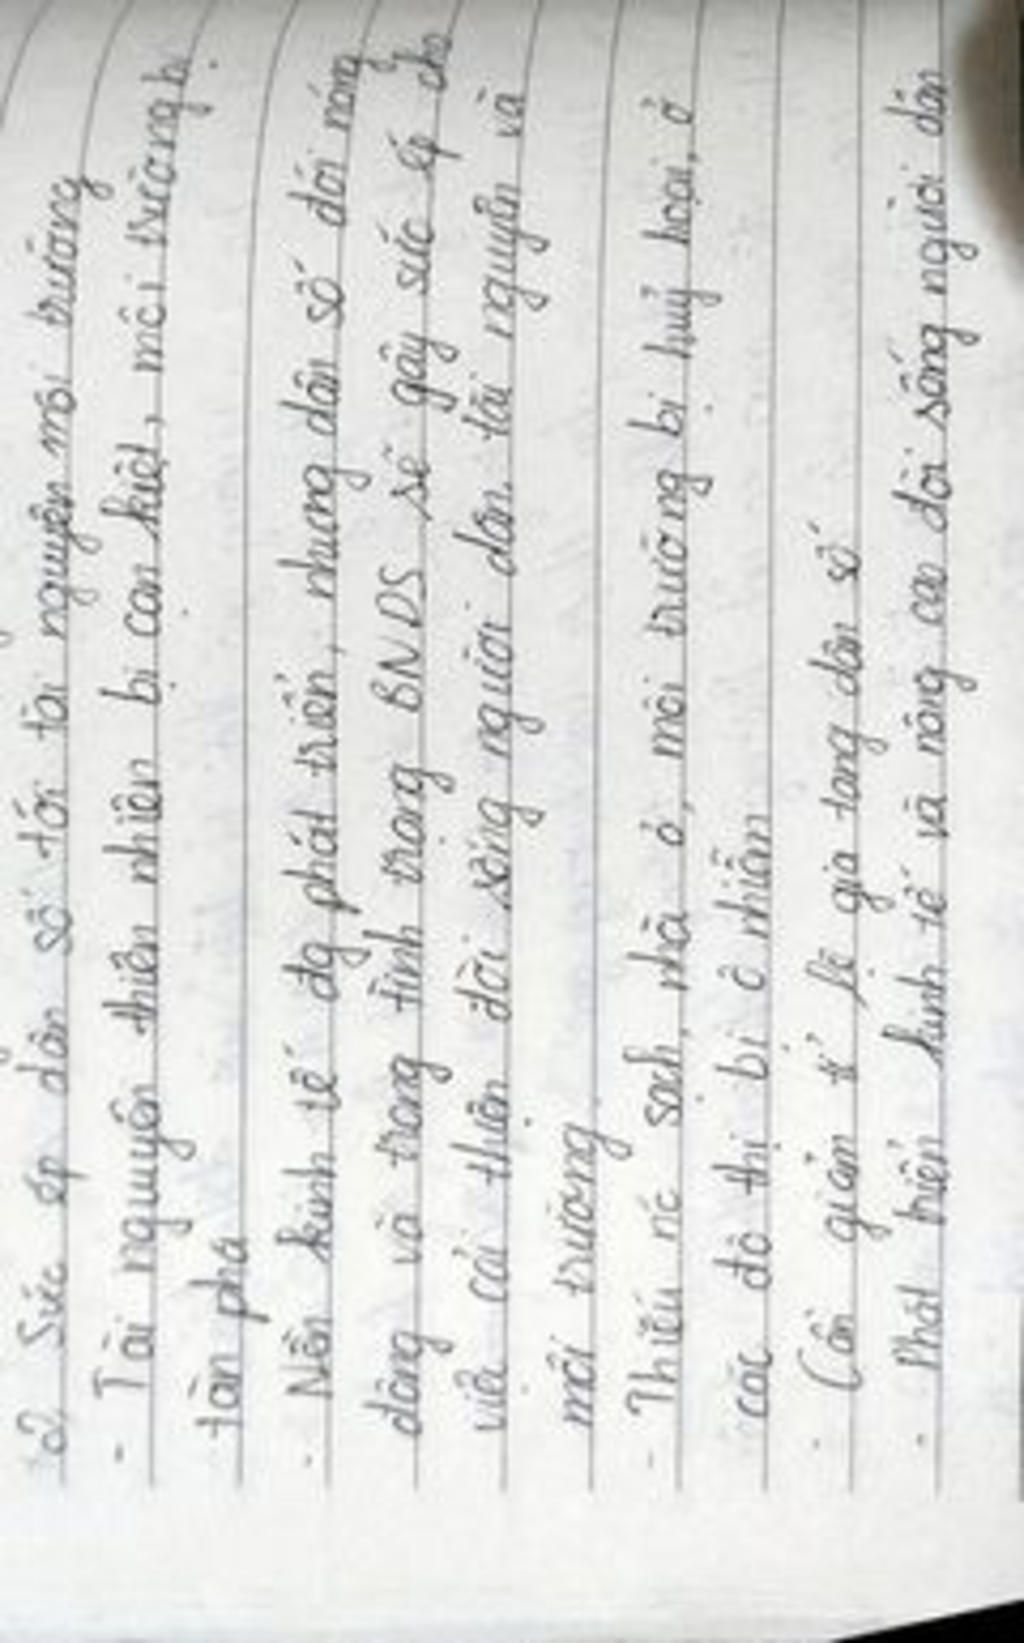 Sức ép dân số tới tài nguyên môi trường
- Tài nguyên thiên nhiên bị cạn kiệt, môi trường bị
tàn phá
- Nền kinh tế đg phát triển, nhưng dân số đói nóng
dâng và trong tình trạng BNDS sẽ gây sức ép cho
việc cải thiện đời sống người dân, tài nguyên và
môi trường
- Thiếu nc sạch, nhà ở, môi trường bị huỷ hoại, ở
các đô thị bị ô nhiễm
- Cần giảm tỉ lệ gia tăng dân số
- Phát triển kinh tế và nâng cao đời sống người dân